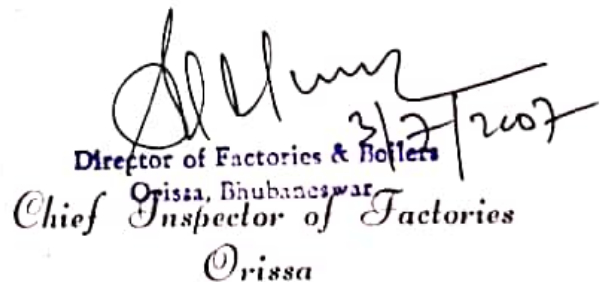 3/7/2007
Director of Factories & Boilers
Orissa, Bhubaneswar
Chief Inspector of Factories
Orissa